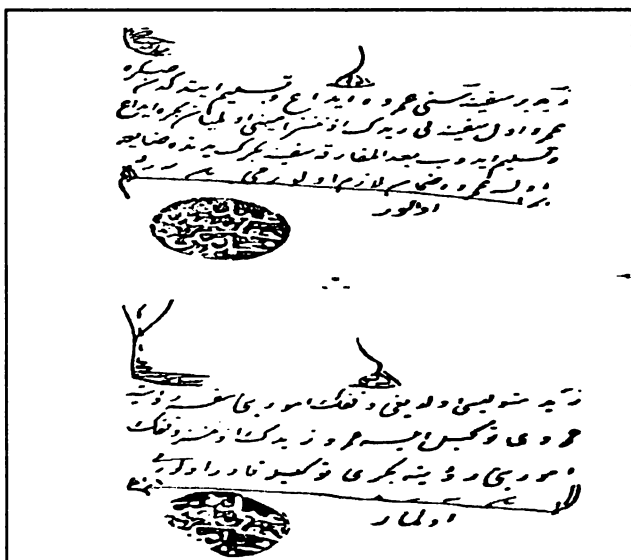 زيد بر سفينه سنى عمروه ايداع و تسليم ايتدكدن صكره
عمرو اول سفينه يى زيدك اذنسز امينى اولميان بكره ايداع
و تسليم ايدوب بعد المفارقه سفينه بكرك يدنده ضايعه
اولسه عمروه ضمان لازم اولورمى
اولور
زيد متوليسى اولديغى وقفك امورينى رؤيته
عمروى توكيل ايسه عمرو زيدك اذنسز وقفك
امورينى رؤيته بكرى توكيله قادر اولورمى
اولماز